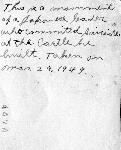 This is a monument
of a Japanese leader
who committed suicide
at the Castle he
built. Taken on
Mar 29, 1949.